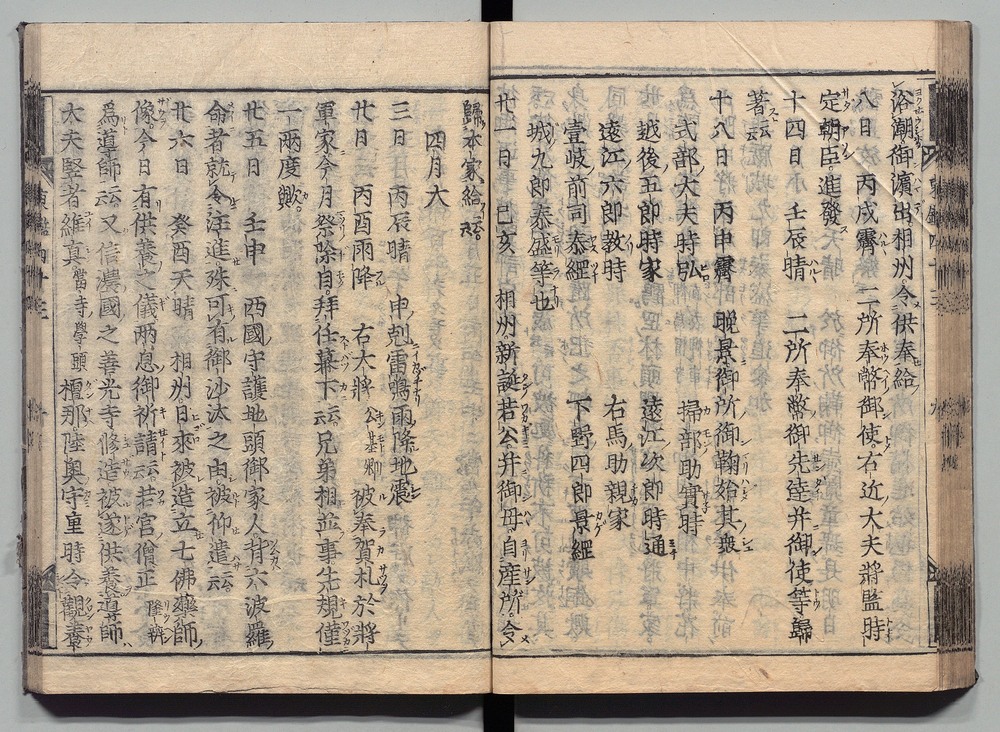 浴潮御濱出相州令供奉給
八日丙戌霽二所奉幣御使右近大夫將監時
定朝臣進發
十四日小壬辰晴二所奉幣御先達并御使等歸
著云云
十八日丙申霽晩景御所御鞠始其衆
式部大夫時弘 掃部助實時
越後五郎時家 遠江次郎時通
遠江六郎教時 右馬助親家
壹岐前司泰經 下野四郎景經
城九郎泰盛等也
廿一日己亥 相州新誕若公并御母自産所令
歸本家給云云
四月大
三日丙辰晴 申剋雷鳴雨降地震
廿日丙酉雨降 右大將公基卿被奉賀札於將
軍家今月祭除自拜任幕下云云兄弟相並事先規僅
一兩度歟
廿五日 壬申 西國守護地頭御家人背六波羅
命者就令注進殊可有御沙汰之由被仰遣云云
廿六日 癸酉天晴 相州日來被造立七佛藥師
像今日有供養之儀兩息御祈請云云若宮僧正隆辨
爲導師云云又信濃國之善光寺修造被遂供養導師
大夫竪者維真當寺學頭檀那陸奥守重時今觀養